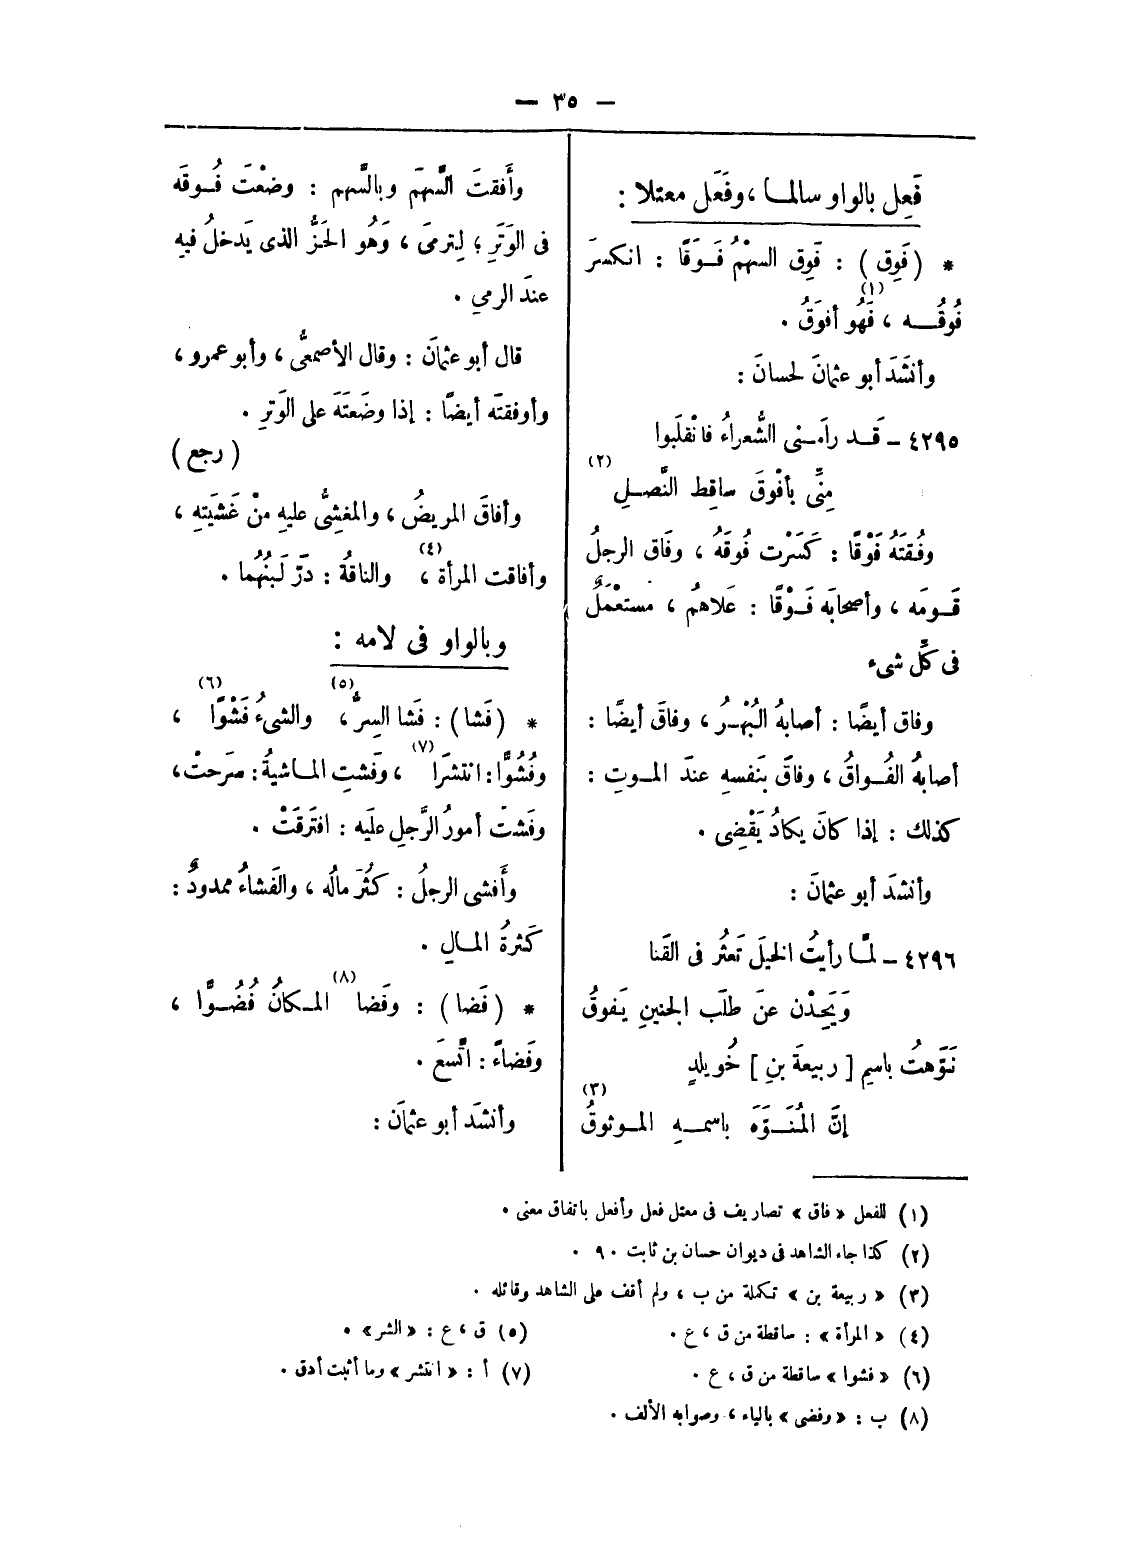 — ٣٥ —
فَعِل بالواو سالمـا ، وفَعَل معتلا :
* ( فَوِق ) : فَوِق السهْمُ فَـوَقًا : انكسرَ
فُوقُـــه (١) ، فَهُو أفوَقُ .
وأنشَدَ أبو عثمانَ لحسانَ :
٤٢٩٥ ـ قَـد رامَـنى الشُّعراءُ فانْقلَبوا
مِنِّى بأفْوقَ ساقِط النَّصـلِ (٢)
وفُقتَهُ فَوْقًا : كَسَرْت فُوقَهُ ، وفَاق الرجلُ
قَـومَه ، وأصحابَه فَـوْقًا : عَلاهُم ، مستعْمَلٌ
فى كلِّ شىء
وفاق أيضًا : أصابهُ البُهْـرُ ، وفاقَ أيضًا :
أصابهُ الفُـواقُ ، وفاقَ بَنفسهِ عندَ المـوتِ :
كذلك : إذا كانَ يكادُ يَقْضِى .
وأنشدَ أبو عثمانَ :
٤٢٩٦ ـ لمَّـا رأيتُ الخيلَ تَعثُر فى القَنا
وَيَحِـدْن عنَ طلَب الجنينِ يَـفوقُ
نَوَّهتُ باسمِ [ ربيعةَ بنِ ] خُويلدٍ
إنَّ المُـنَـوَّهَ باسمـــهِ المـوثوقُ (٣)
وأَفقتَ السَّهمَ وبالسَّهم : وضعْتَ فُـوقَه
فى الوَتَرِ ؛ لِترمىَ ، وَهُو الحَزُّ الذى يَدخلُ فيهِ
عندَ الرمىِ .
قال أبو عثمانَ : وقال الأصمعىُّ ، وأبو عمرو ،
وأوفقتَه أيضًا : إذا وضَعتَهَ على الوَترِ .
( رجع )
وأفاقَ المريضُ ، والمغشِىُّ عليهِ منْ غَشيَتهِ ،
وأفاقت المرأة (٤) ، والناقةُ : درّ لَبنُهُما .
وبالواو فى لامه :
* ( فَشا ) : فَشا السِرُّ (٥) ، والشىءُ فَشْوًا (٦) ،
وفُشُوًّا : انتشرَا (٧) ، وفَشتِ المـاشيةُ : سَرحتْ ،
وفَشتْ أمورُ الرَّجلِ علَيه : افتَرقَتْ .
وأَفشى الرجلُ : كثُرَ مالُه ، والفَشاءُ ممدودٌ :
كَثرةُ المـالِ .
* ( فَضا ) : وفَضا (٨) المـكانُ فُضُـوًّا ،
وفَضاءً : اتَّسعَ .
وأنشَد أبو عثمانَ :
(١) للفعل « فاق » تصاريف فى معتل فعل وأفعل باتفاق معنى .
(٢) كذا جاء الشاهد فى ديوان حسان بن ثابت ٩٠ .
(٣) « ربيعة بن » تكملة من ب ، ولم أقف على الشاهد وقائله .
(٤) « المرأة » : ساقطة من ق ، ع . (٥) ق ، ع : « الشر » .
(٦) « فشوا » ساقطة من ق ، ع . (٧) أ : « انتشر » وما أثبت أدق .
(٨) ب : « وفضى » بالياء ، وصوابه الألف .